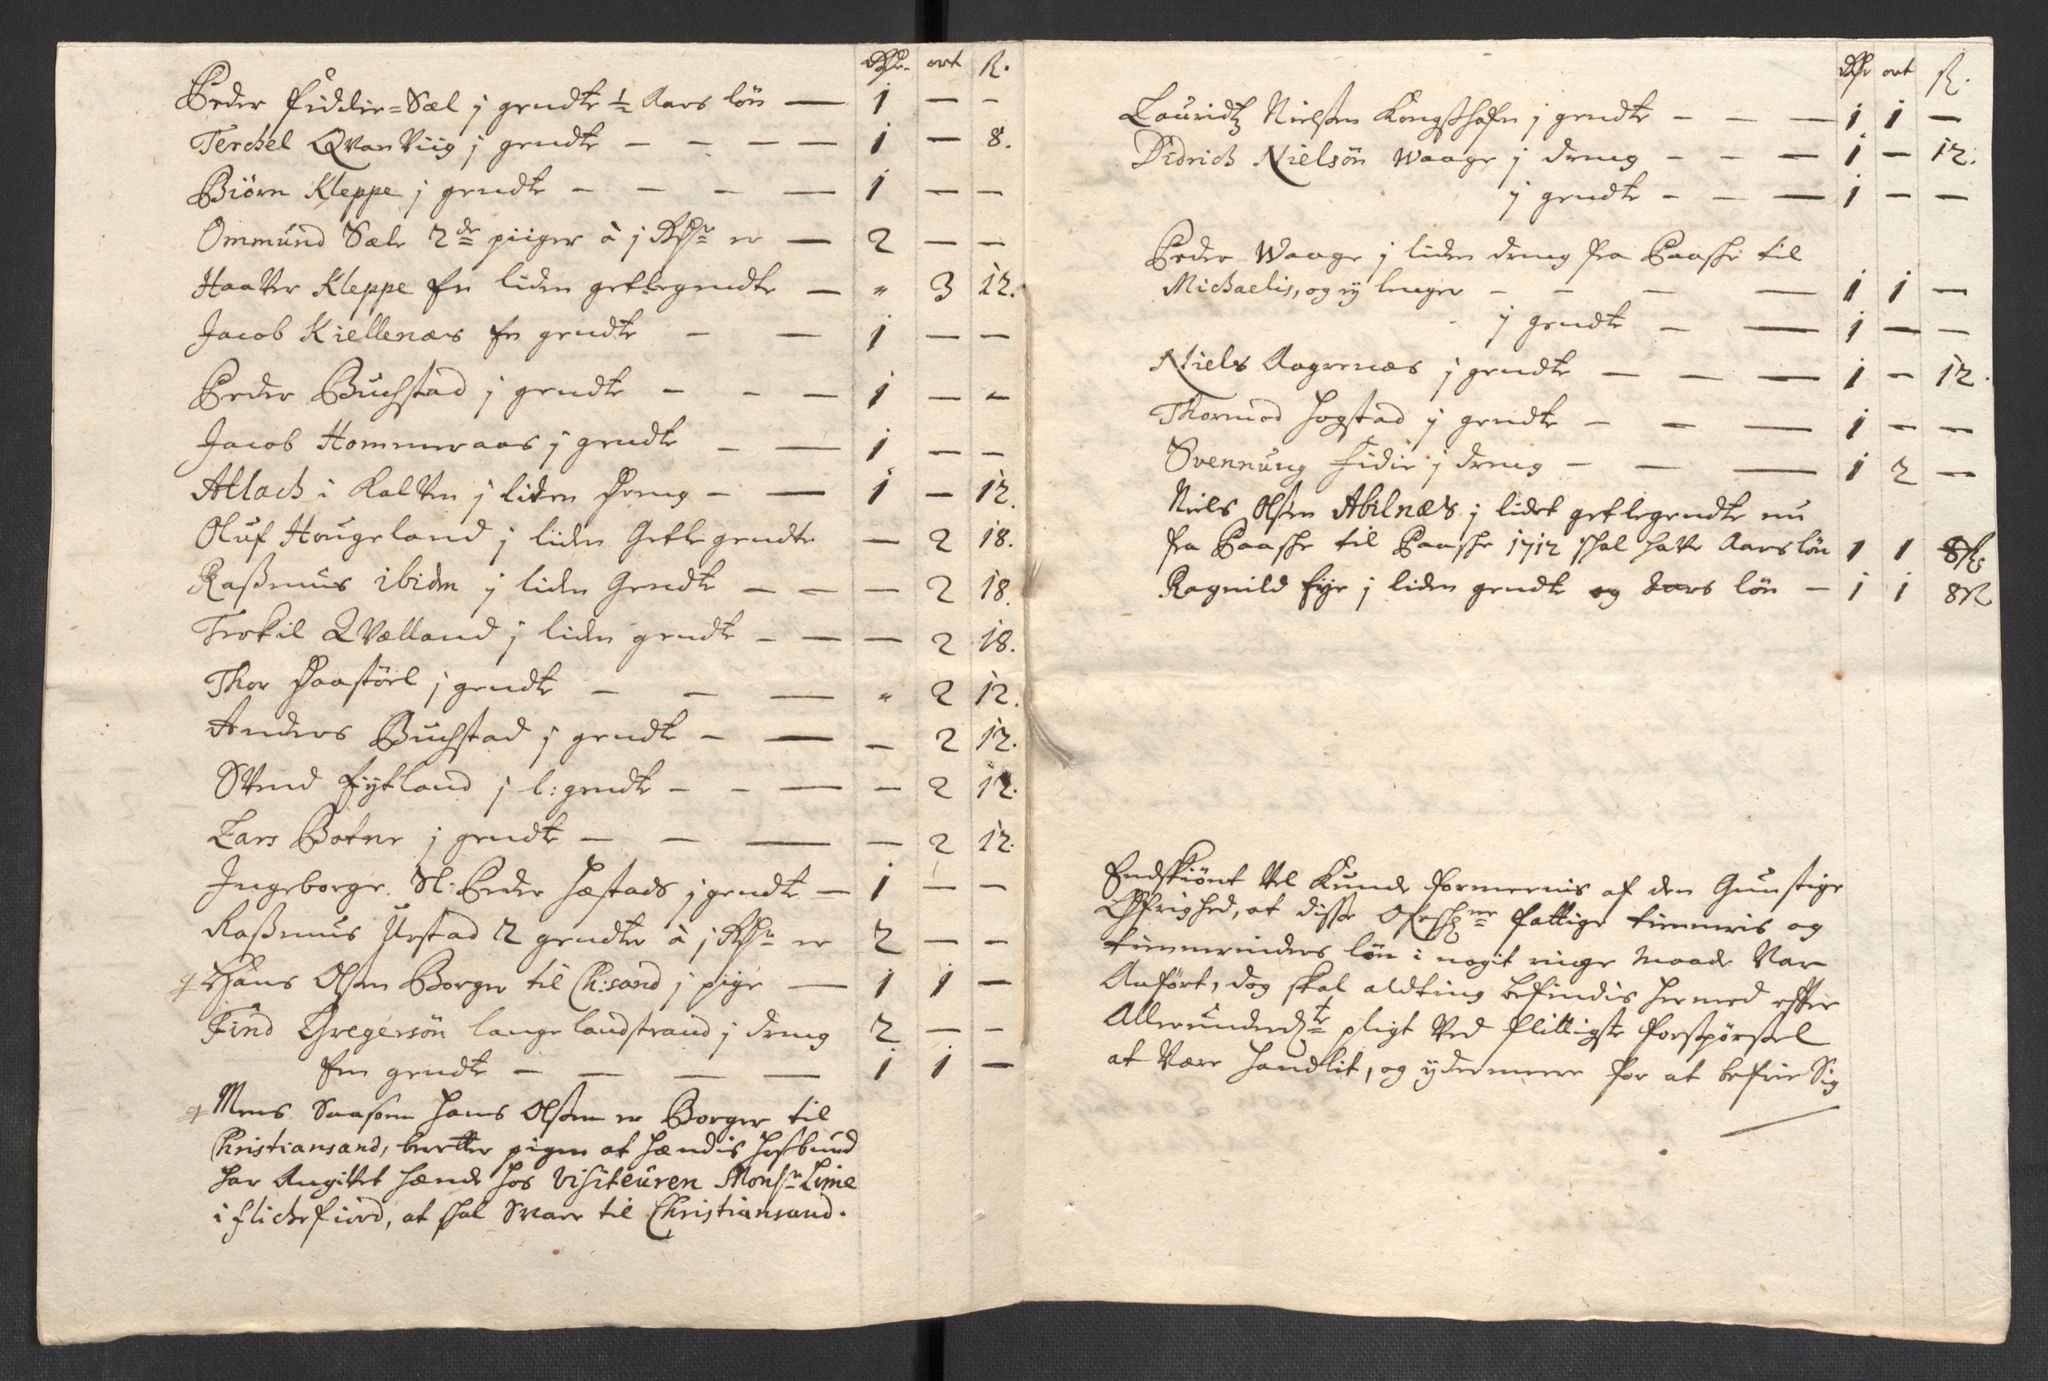 Rdr. ort ß.
Peder Fiddie=Sæl j gendte ½ Aars lön — 1 — —
Terchel Qvanviig j gendte — — — — 1 — 8.
Biörn Kleppe j gendte — — — — 1 — —
Ommund Sæle 2de piiger à j Rdr er — 2 — —
Haaver Kleppe en liden getlegendte — " 3 12.
Jacob Kiellenæs en gendte — — 1 — —
Peder Buchstad j gendte — — — 1 — —
Jacob Hommeraas j gendte — — 1 — —
Atlach i Kalven j liden Dreng — — 1 — 12.
Oluf Hougeland j liden Getlegendte — 2 18.
Rasmus ibidem j liden Gendte — — — 2 18.
Terkil Qvælland j liden gendte — — — 2 18.
Thor Daastöel j gendte — — — " 2 12.
Anders Buchstad j gendte — — — 2 12.
Svend Eytland j l: gendte — — — — 2 12.
Lars Botne j gendte — — — — 2 12.
Ingeborge Sl: Peder Hæstads j gendte — 1 — —
Rasmus Urstad 2 gendter à j Rdr er 2 — —
Hans Olsen Borger til Ch:sand j pige — 1 1 —
Find Gregersön lange landstrand j dreng 2 — —
en gendte — — — — 1 1 —
Mens Saasom Hans Olsen er Borger til
Christiansand, beretter pigen at hændis Hosbund
har Angivet hænde hos Visiteuren Monsr Lime
i Flichefiord, at skal Svare til Christiansand.
Rdr ort ß.
Lauridtz Nielsen Kongshafn j gendte — — — 1 1 —
Didrich Nielsön Waage j dreng — — — 1 — 12.
j gendte — — — 1 — —
Peder Waage j liden dreng fra Paaske til
Michaelis, og ej lenger — — — — 1 1 —
j gendte — — 1 — —
Niels Aagernæs j gendte — — — 1 — 12.
Thormod Hogstad j gendte — — — 1 — —
Svennung Fidie j dreng — — — 1 2 —
Niels Olsen Abilnæs j lidet getlegendte nu
fra Paaske til Paaske 1712 skal have Aarslön 1 1 8ß
Ragnild Eye j liden gendte og Aars lön — 1 1 8ß
Endskiönt vel Kunde formeenis af den Gunstige
Öfrighed, at disse fattige tienneris og
tiennerinders lön i nogit ringe Maade var
Anfört, dog skal aldting befindis hermed effter
Allerunderdte pligt ved flittigste forspörsel
at være handlit, og ydermeere for at befrie Sig